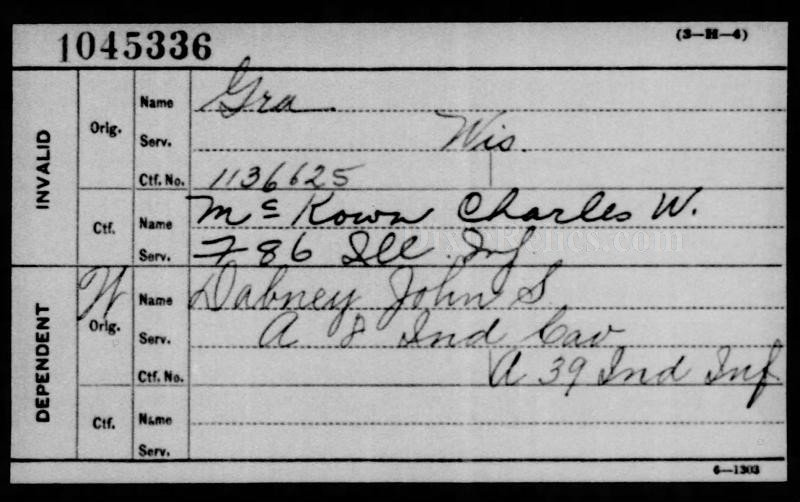 1045336
(3-H-4)
INVALID
Orig.
Name Gra
Serv. Wis.
Ctf. No. 1136625
Ctf.
Name McKown Charles W.
Serv. F 86 Ill. Inf.
DEPENDENT
W
Orig.
Name Dabney John S
Serv. A 8 Ind Cav
Ctf. No. A 39 Ind Inf
Ctf.
Name
Serv.
6-1303